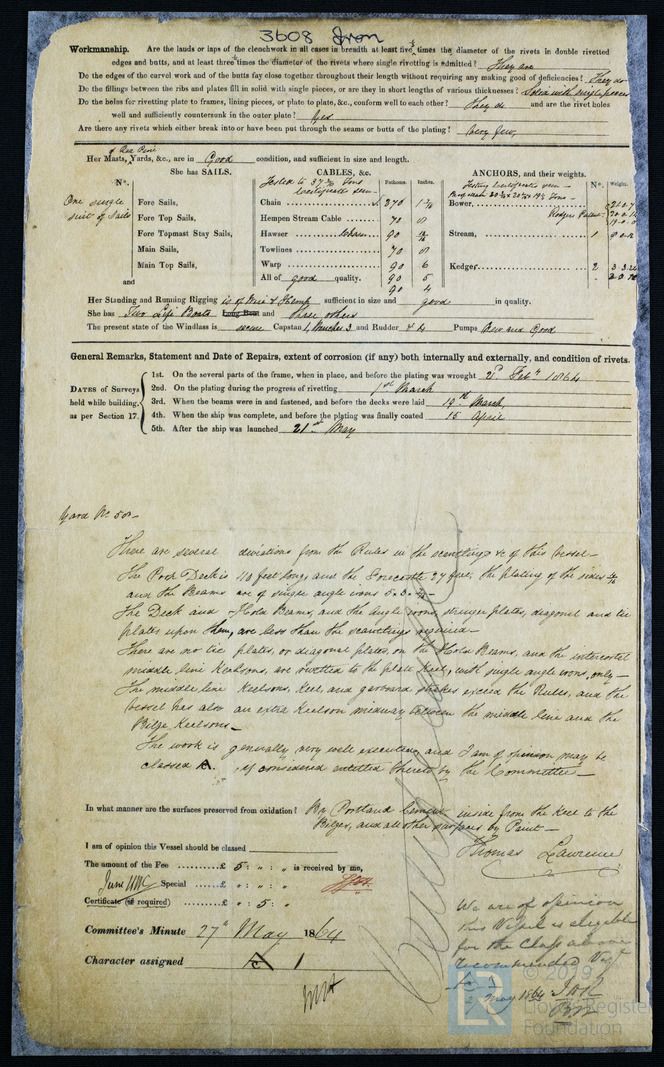 3608 Iron
Workmanship. Are the lands or laps of the clenchwork in all cases in breadth at least five times the diameter of the rivets in double rivetted
edges and butts, and at least three times the diameter of the rivets where single rivetting is admitted? They are
Do the edges of the carvel work and of the butts fay close together throughout their length without requiring any making good of deficiencies? They do
Do the fillings between the ribs and plates fill in solid with single pieces, or are they in short lengths of various thicknesses? Solid with single pieces
Do the holes for rivetting plate to frames, lining pieces, or plate to plate, &c., conform well to each other? They do and are the rivet holes
well and sufficiently countersunk in the outer plate? Yes
Are there any rivets which either break into or have been put through the seams or butts of the plating? Very few
Her Masts, Yards, &c., are in Good condition, and sufficient in size and length.
She has SAILS. CABLES, &c. Fathoms. Inches. ANCHORS, and their weights. Nº. Weight.
Nº. Tested to 37 Tons
Certificate seen
One single suit of Sails
Fore Sails, Chain 270 Bower,
Fore Top Sails, Hempen Stream Cable 70 8
Fore Topmast Stay Sails, Hawser 90 Stream, 1
Main Sails, Towlines 70 8
Main Top Sails, Warp 90 6 Kedge, 2
and All of good quality. 90 5
90 4
Her Standing and Running Rigging is of Wire & Hemp sufficient in size and good in quality.
She has Two Life Boats Long Boat and three others
The present state of the Windlass is secure Capstan 1, Winches 3 and Rudder Pumps New and Good
General Remarks, Statement and Date of Repairs, extent of corrosion (if any) both internally and externally, and condition of rivets.
DATES of Surveys held while building, as per Section 17.
1st. On the several parts of the frame, when in place, and before the plating was wrought 2d Feby 1864
2nd. On the plating during the progress of rivetting 1st March
3rd. When the beams were in and fastened, and before the decks were laid 19th March
4th. When the ship was complete, and before the plating was finally coated 15 April
5th. After the ship was launched 21st May
Yard No 50
There are several deviations from the Rules in the scantlings &c of this Vessel
The Poop Deck is 110 feet long, and the Forecastle 27 feet, the plating of the sides
and the Beams are of single angle irons 5.3.
The Deck and Hold Beams, and the angle irons, stringer plates, diagonal and tie
plates upon them, are less than the scantlings required
There are not tie plates, or diagonal plates, on the Hold Beams, and the intercostal
middle line Keelsons, are rivetted to the plate Keel, with single angle irons, only
The middle line Keelsons, Keel and garboard strakes exceed the Rules, and the
Vessel has also an extra Keelson midway between the middle line and the
Bilge Keelsons
The work is generally very well executed and I am of opinion may be
classed A. if considered entitled thereto by the Committee
In what manner are the surfaces preserved from oxidation? By Portland Cement inside from the Keel to the
Bilges, and all other surfaces by Paint
I am of opinion this Vessel should be classed
Thomas Lawrence
The amount of the Fee £ 5 : " : " is received by me,
Special £ " : " : "
Certificate (if required) " : 5 : "
Committee's Minute 27th May 1864
Character assigned A 1
We are of opinion
this Vessel is eligible
for the Class above
recommended
27 May 1864
© 2019
Lloyd's Register
Foundation
LR